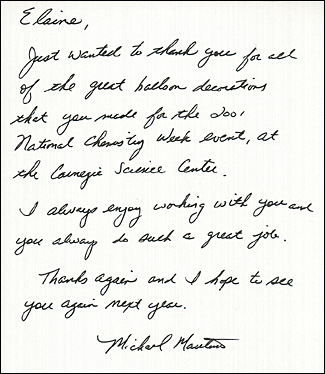 Elaine,
Just wanted to thank you for all
of the great balloon decorations
that you made for the 2001
National Chemistry Week event, at
the Carnegie Science Center.
I always enjoy working with you and
you always do such a great job.
Thanks again and I hope to see
you again next year.
Michael